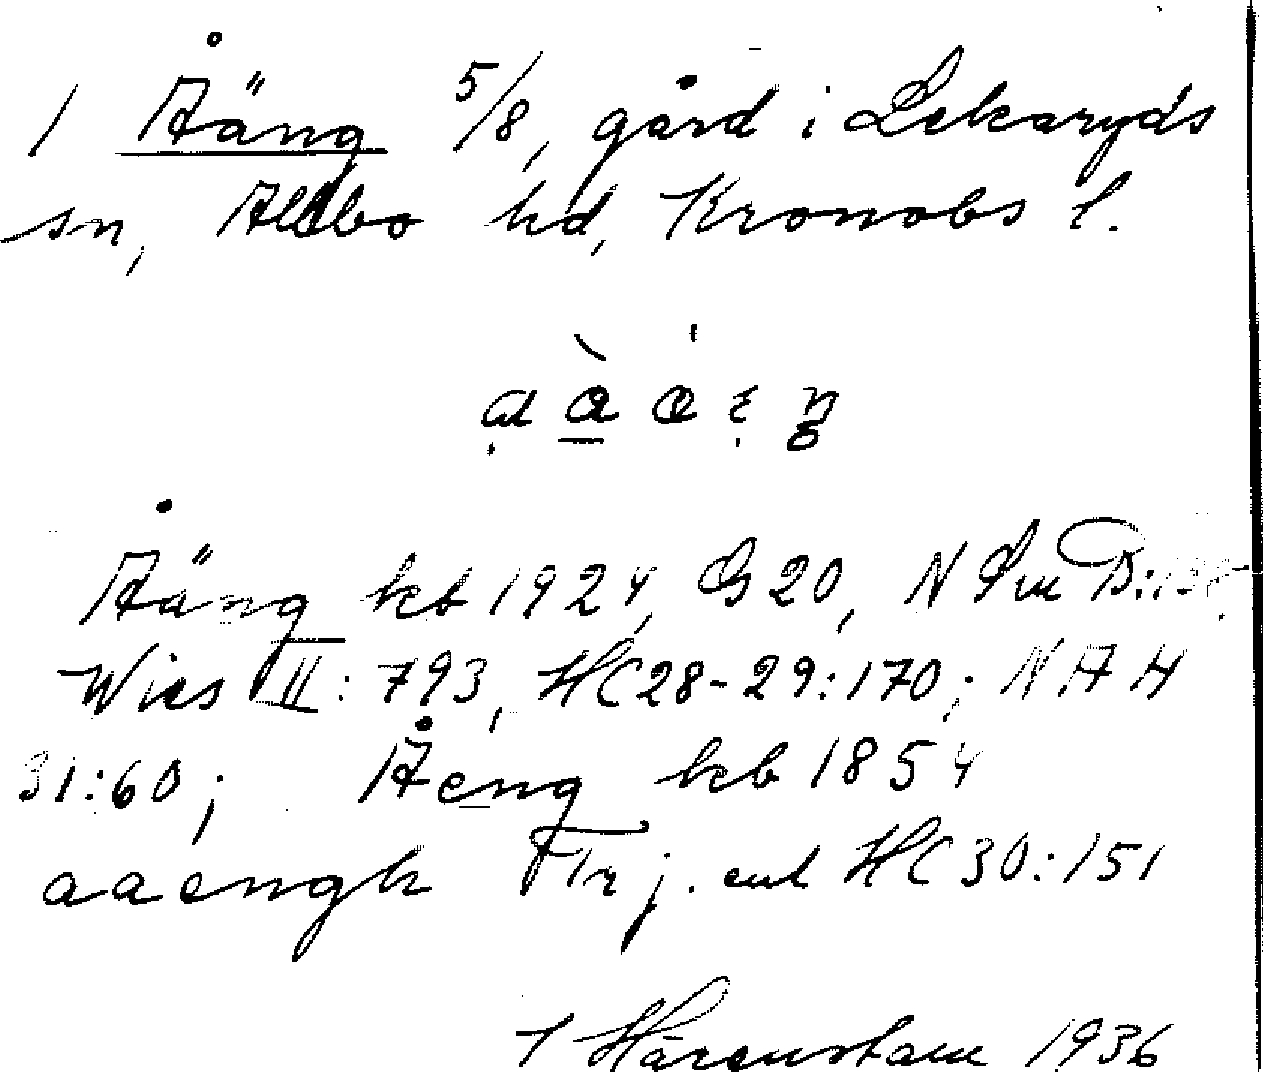 1 Åäng 5/8, gård i Lekaryds
sn, Allbo hd, Kronobs l.
Åäng kb 1924, G 20, N Sm D:
Wies II: 793, HC 28-29:170; N A H
31:60; Åeng kb 1854
aaengh Trj. enl HC 30:151
Härenstam 1936